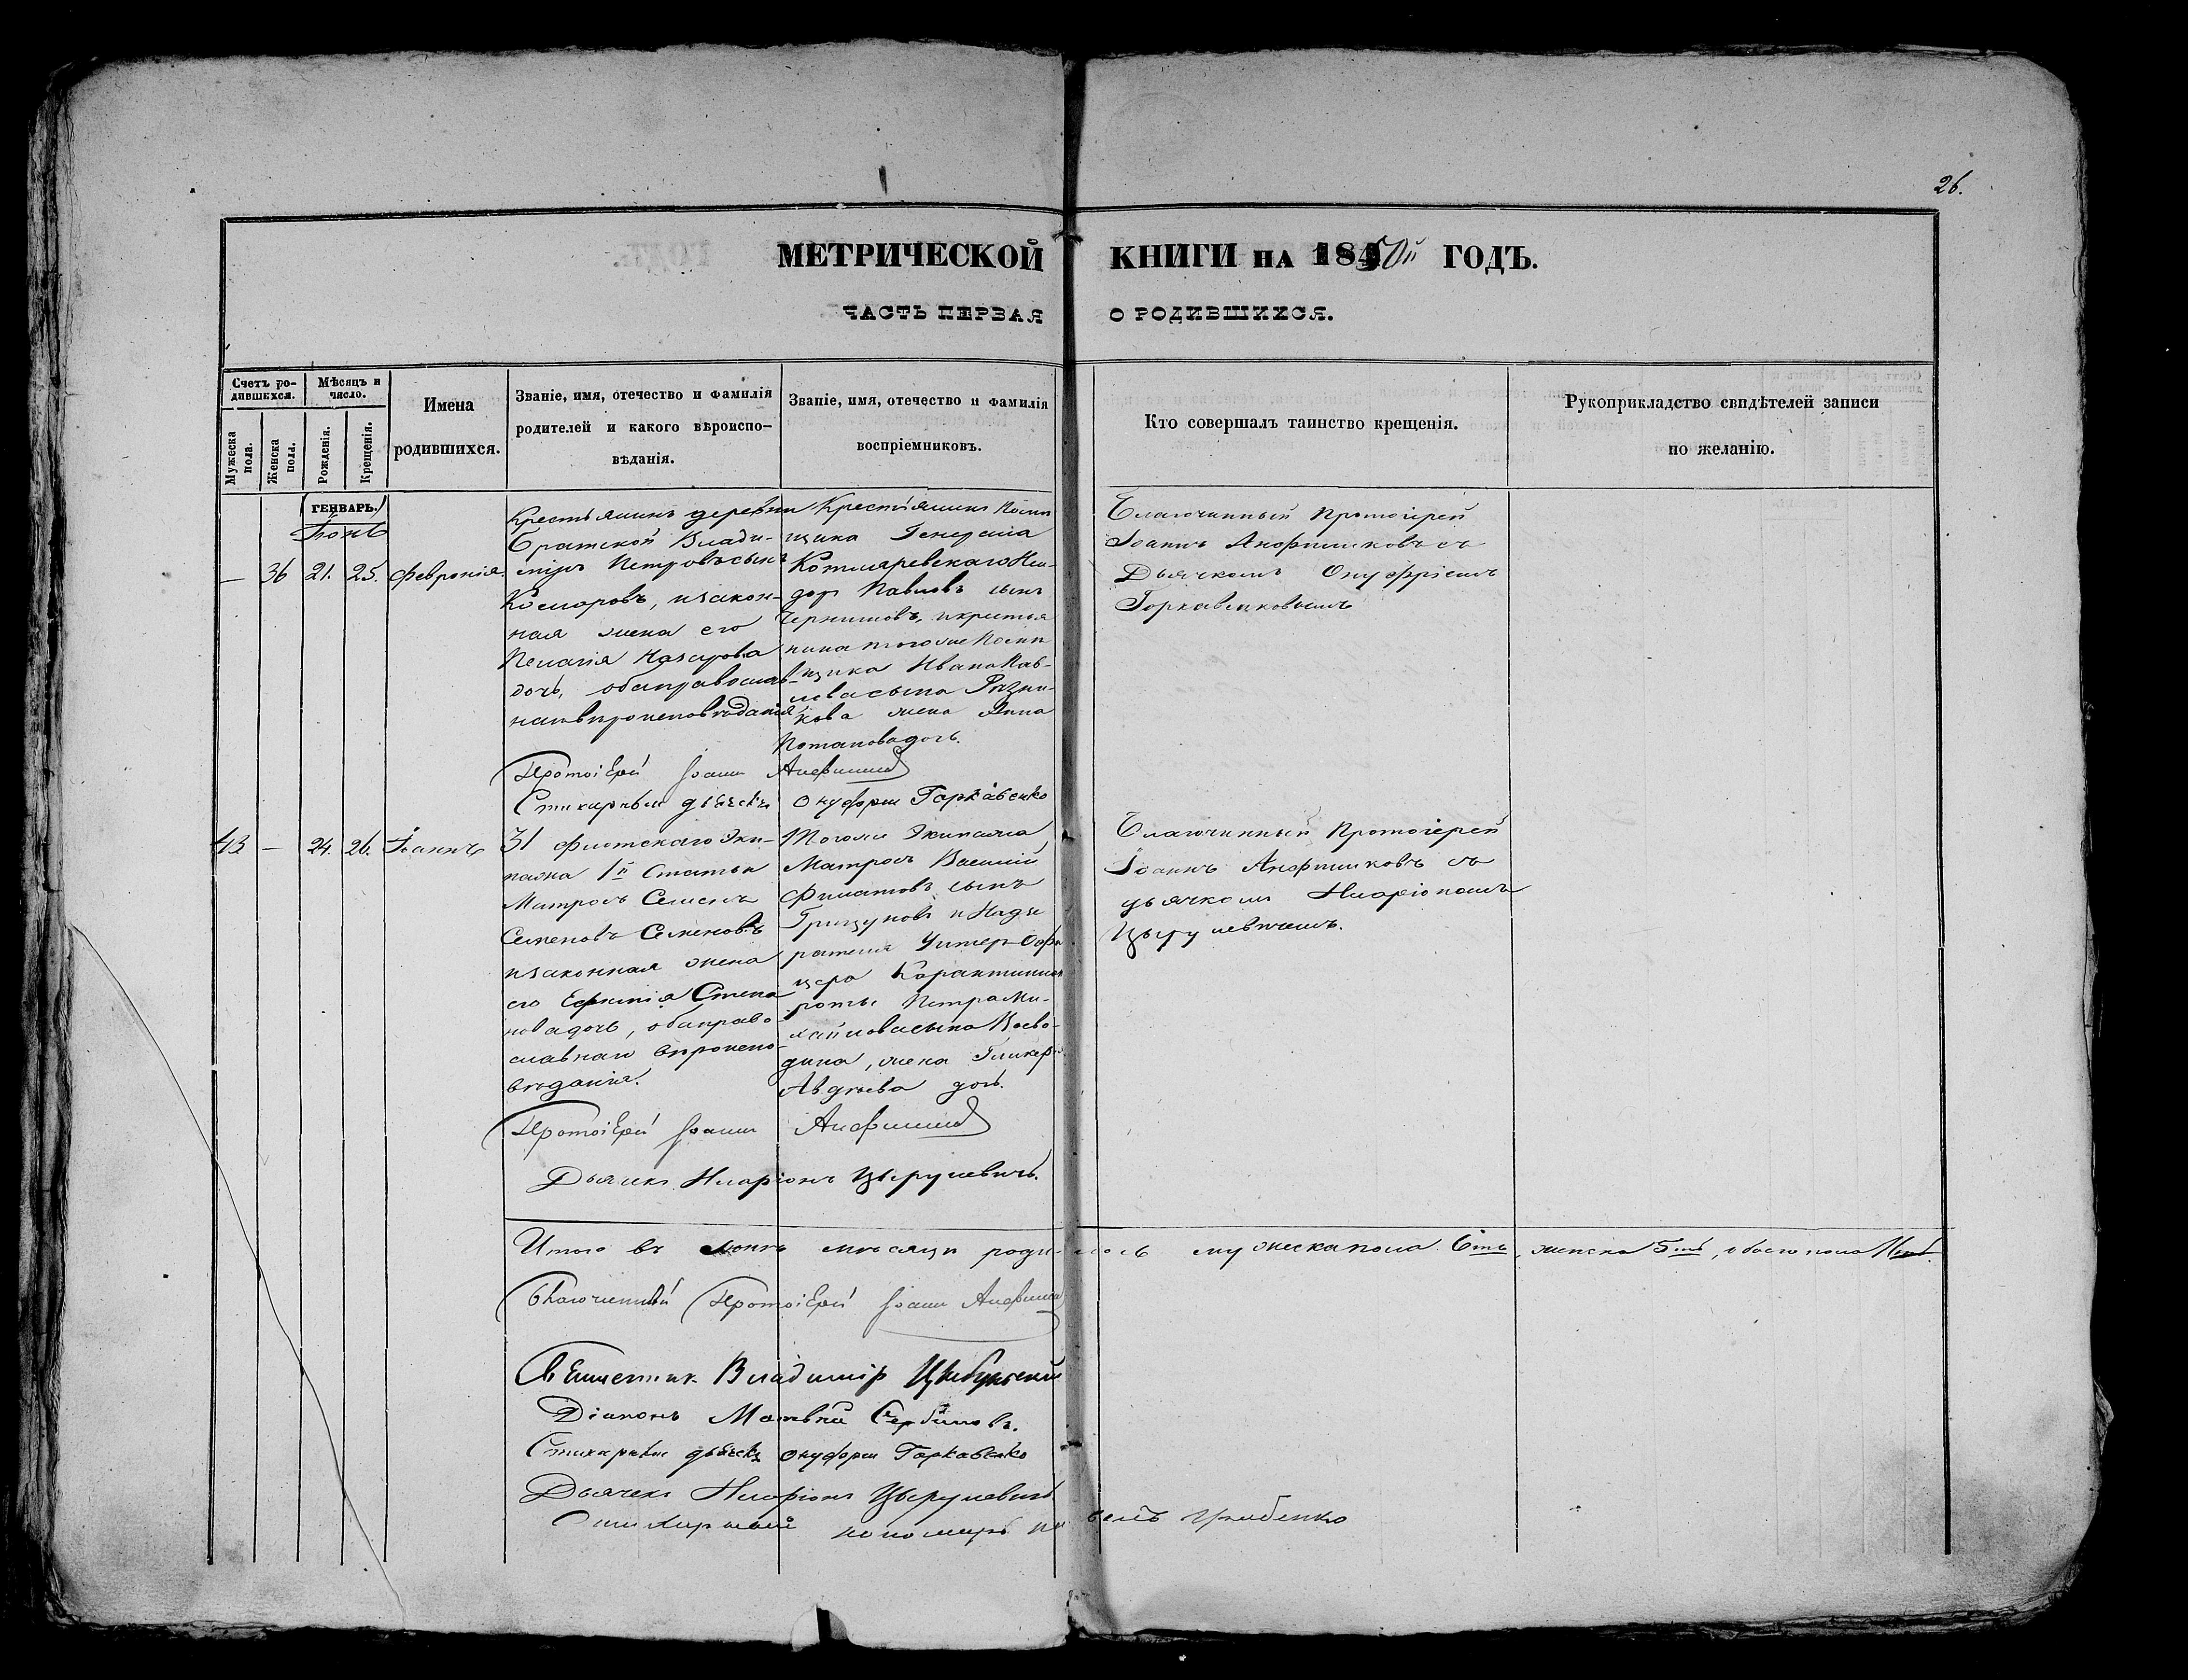 26.
МЕТРИЧЕСКОЙ КНИГИ НА 1850й ГОДЪ.
ЧАСТЬ ПЕРВАЯ О РОДИВШИХСЯ.
Счетъ родившихся.
Мужеска пола.
Женска пола.
Мѣсяцъ и число.
Рожденія.
Крещенія.
Имена родившихся.
Званіе, имя, отечество и фамилія
родителей и какого вѣроиспо-
вѣданія.
Званіе, имя, отечество и фамилія
воспріемниковъ.
Кто совершалъ таинство крещенія.
Рукоприкладство свидѣтелей записи
по желанію.
ГЕНВАРЬ.
Іюнь
— 36 21. 25. Февронія.
Крестьянинъ деревни
Братской Влади-
міръ Петровъ сынъ
Комаровъ, и закон-
ная жена его
Пелагія Назарова
дочь, оба православ-
наго вѣроисповѣданія
Крестьянинъ Помѣ
щика Генерала
Котляревскаго
Павловъ сынъ
и крестья
нина того же Помѣ
щика Ивана Пав-
лова сына
кова жена Анна
Потапова дочь.
Благочинный Протоіерей
Іоаннъ Анфимиковъ съ
Дьячкомъ Онуфріемъ
Горкавенковымъ
Протоіерей Іоаннъ
Стихарный дьячекъ Онуфрій Горкавенко
43 — 24. 26. Іоаннъ
31 флотскаго Эки-
пажа 1й Статьи
Матрозъ Семенъ
Семеновъ Семеновъ
и законная жена
его Ефимія Степа
нова дочь, оба право-
славнаго вѣроиспо-
вѣданія.
Того же Экипажа
Матрозъ Василій
Филатовъ сынъ
и Надзи
рателя Унтеръ Офи
цера Карантинной
роты Петра Ми-
хайлова сына Воево-
дина, жена Гликерія
Авдѣева дочь.
Благочинный Протоіерей
Іоаннъ Анфимиковъ съ
дьячкомъ Иларіономъ
Цырулевичемъ.
Протоіерей Іоаннъ
Дьячекъ Иларіонъ Цырулевичь.
Итого въ Іюнѣ мѣсяцѣ родилось мужеска пола 6ть, женска 5ть, обоего пола 11ть.
Благочинный Протоіерей Іоаннъ
Священникъ Владиміръ
Діаконъ Матвѣй Сербиновъ.
Стихарный дьячекъ Онуфрій Горкавенко
Дьячекъ Иларіонъ Цырулевичь
Стихарный пономарь Павелъ